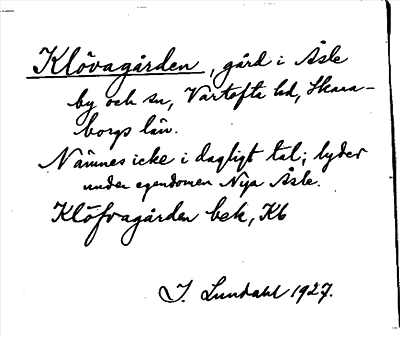 Klövagården, gård i Åsle
by och sn, Vartofta hd, Skara-
borgs län.
Nämnes icke i dagligt tal; lyder
under egendomen Nya Åsle.
Klöfvagården bek, Kb
J. Lundahl 1927.